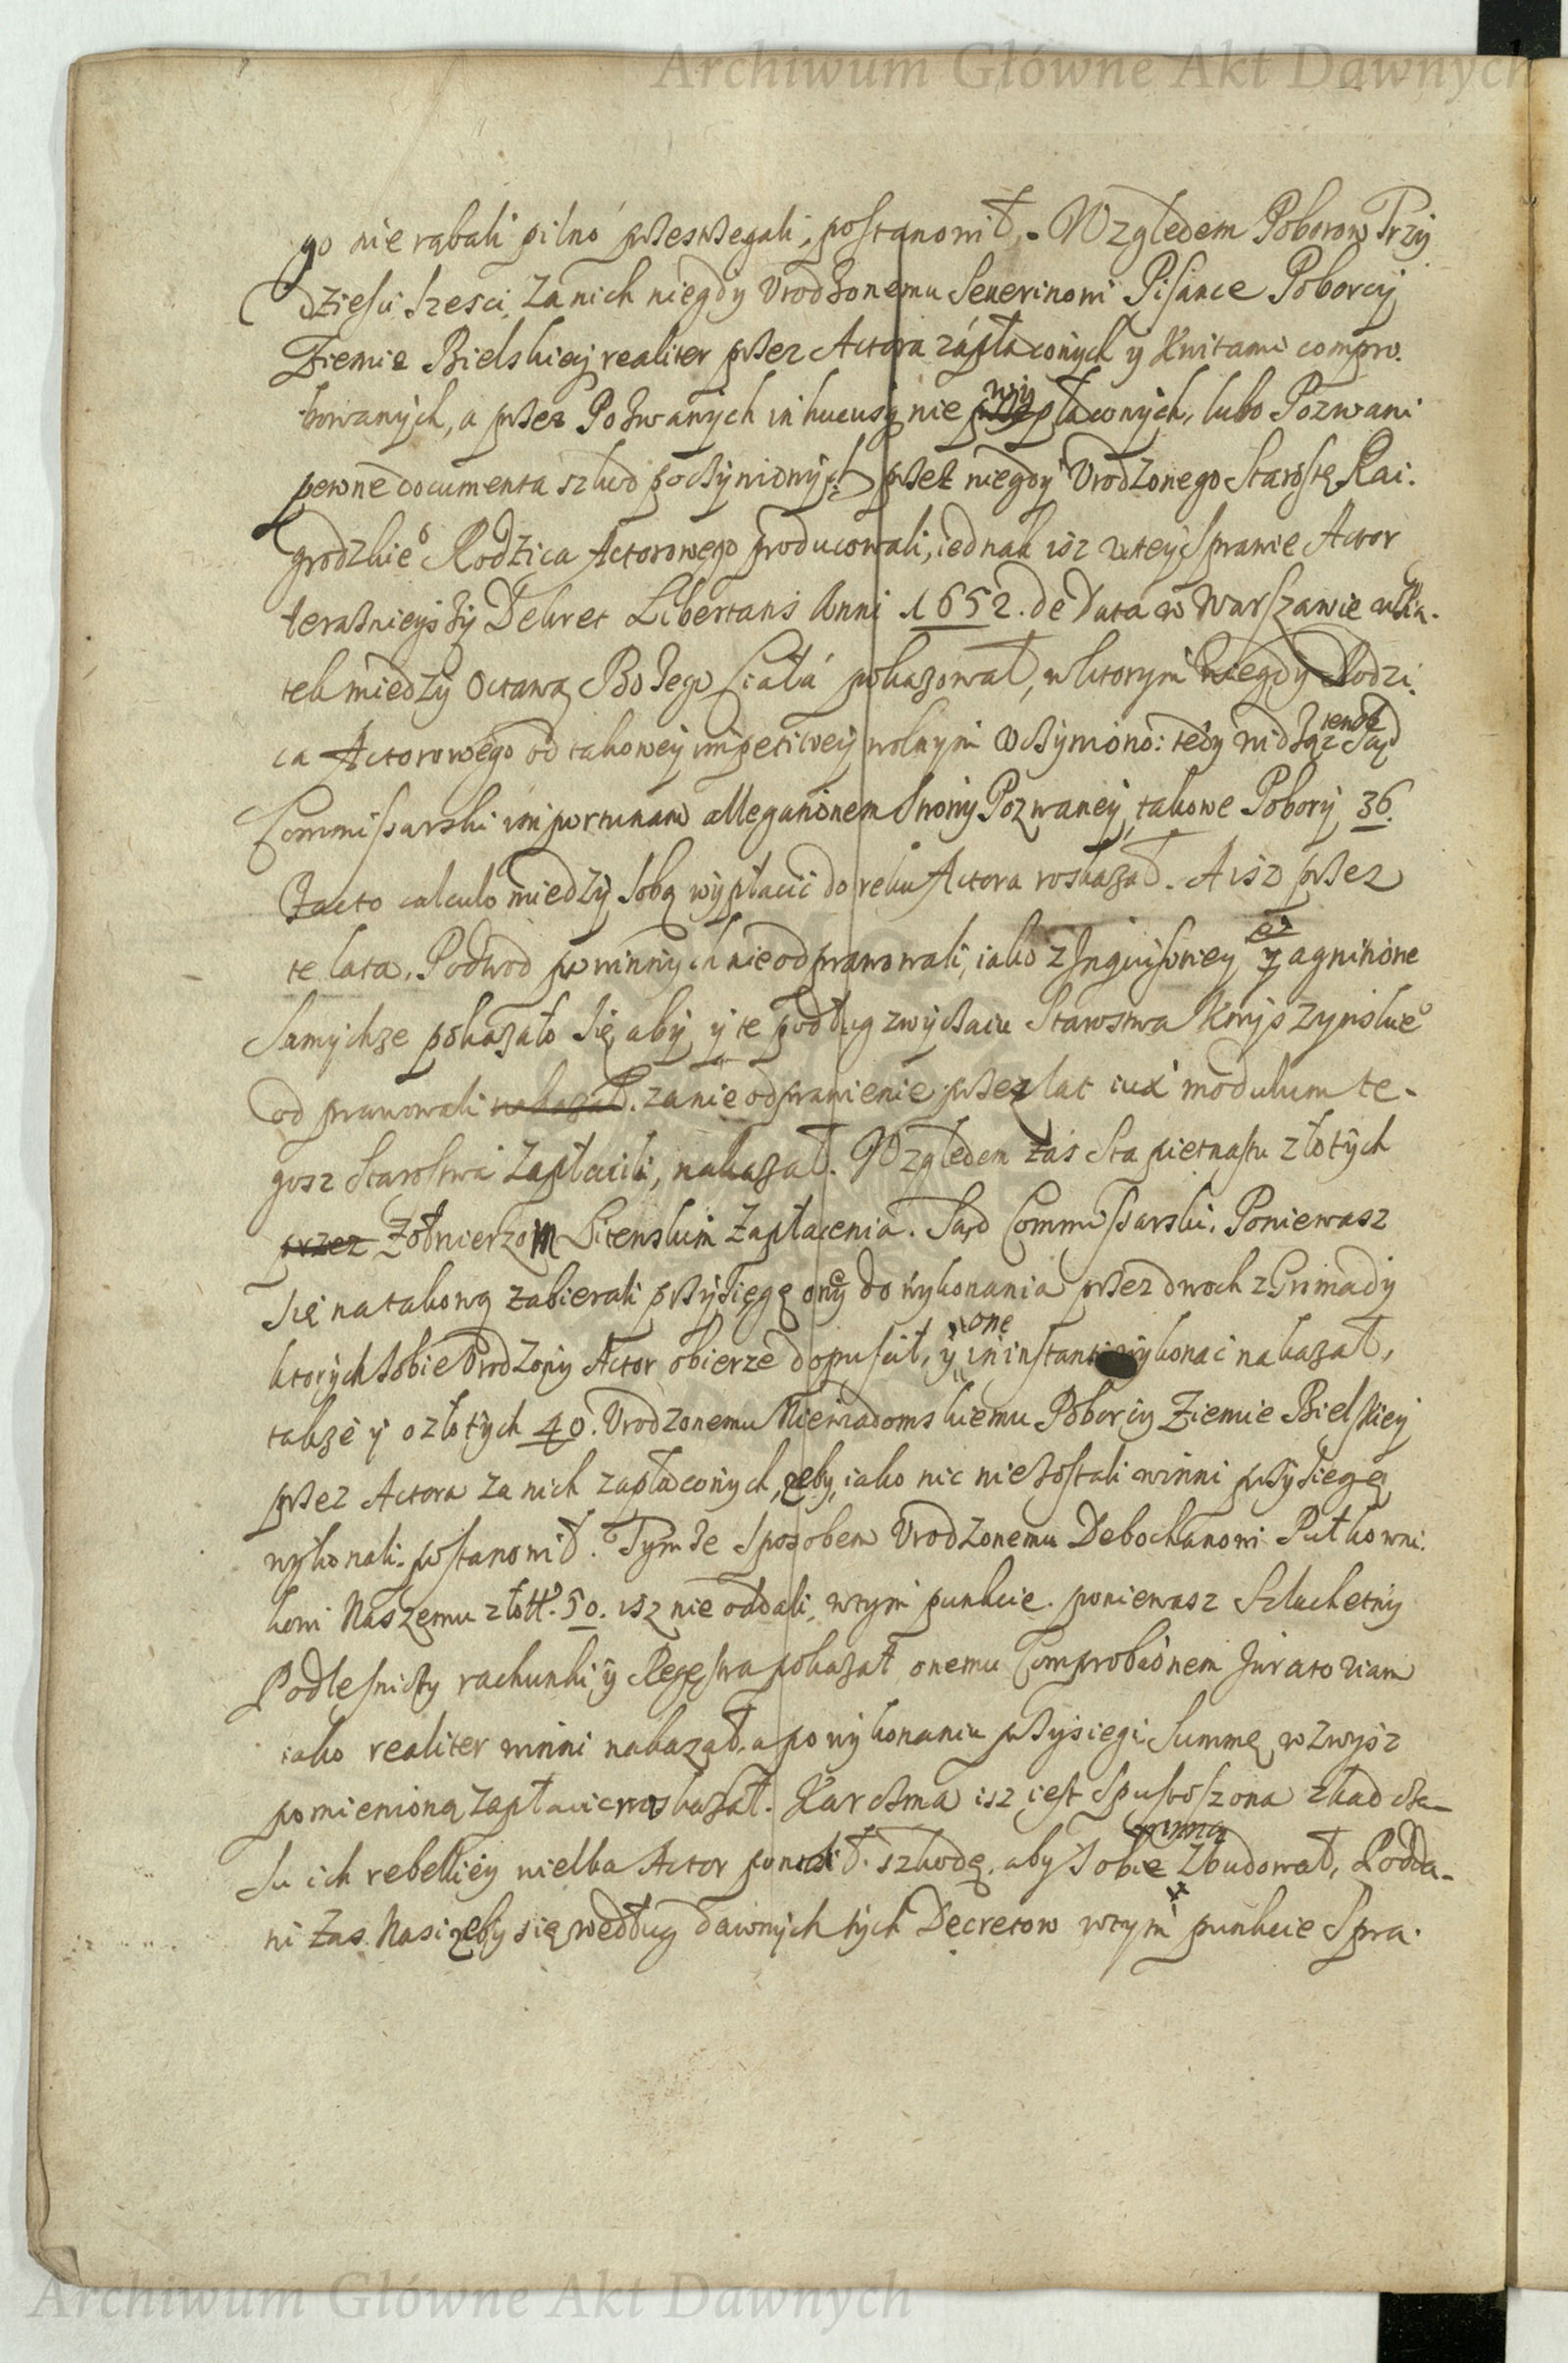 Archiwum Główne Akt Dawnych
go nie rąbali pilno przestrzegali, postanowił. Względem Poborow Trzy
Dziesci Szesci, Za nich niegdy Vrodzonemu Seuerinowi Pisance Poborcy
Ziemie Bielskiey realiter przez Actora zápłaconych y Kwitami compro.
bowanych, a przez Pozwanych in hucusq nie wypłaconych, lubo Pozwani
pewne documenta szkod poczynionych przez niegdy Vrodzonego Starostę Rai.
grodzkieo Rodzica Actorowego producowali, iednak isz w tey Sprawie Actor
teraznieyszy Dekret Libertans Anni 1652. de Data w Warszawie
tek między Octawą Bożego Ciałá pokazował, w ktorym niegdy Rodzi.
ca Actorowego od takowey impeticiey wolnym vczyniono: tedy widząc tenże Sąd
Commissarski importunam allegationem Strony Pozwaney, takowe Pobory 36.
facto calculo między sobą wypłacić do ręku Actora roskazał. A isz przez
te lata, Podwod powinnych nie odprawowali, iako z Inquisitiey et agnitione
Samychże pokazało się, aby y te podług zwyczaiu Starostwa Knyszynskieo
odprawowali nakazał. za nie odprawienie przez lat iux modulum te-
gosz Starostwa Zapłacili, nakazał. Względem zas Sta pietnastu złotych
przez Żołnierzom Litenskim Zapłacenia. Sąd Commissarski. Poniewasz
się na takową zabierali przysięgę ony do wykonania przez dwoch z Gromady
ktorych sobie Vrodzony Actor obierze dopuscił, y one in instanti wykonać nakazał,
takze y o złotych 40. Vrodzonemu Niewiadomskiemu Poborcy Ziemie Bielskiey
przez Actora za nich zapłaconych, zeby, iako nic nie zostali winni przysięgę
wykonali. postanowił. Tymże sposobem Vrodzonemu Debochanowi Pułkowni.
kowi Naszemu złott. 50. isz nie oddali, w tym punkcie. poniewasz Szlachetny
Podlesniczy rachunki y Regestra pokazał onemu Comprobaonem Juratoriam
iako realiter winni nakazał, a po wykonaniu przysięgi Summę wzwysz
pomienioną zapłacic roskazał. Karczma isz iest spustoszona z kąd cza-
su ich rebelliey wielką Actor ponosił szkodę, aby sobie inną Zbudował, Podda-
ni Zas Nasi zeby się według dawnych tych Decretow w tym punkcie Spra.
Archiwum Główne Akt Dawnych